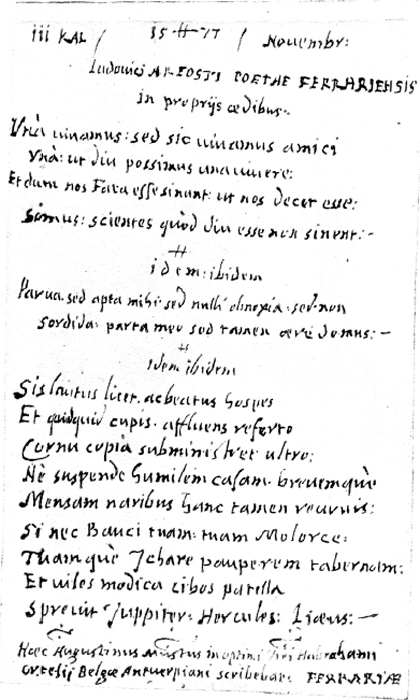 iii KAL / 15-#-77 / Nouembr:
Ludouici AREOSTI POETAE FERRARIENSIS
in proprijs œdibus.
Vnà uiuamus: sed sic uiuamus amici
Vnà: ut diu possimus una uiuere:
Et dum nos Fata esse sinunt: ut nos decet esse:
Simus: scientes quòd diu esse non sinent:-
#
idem: ibidem
Parua. sed apta mihi: sed nulli obnoxia: sed non
Sordida: parta meo sed tamen ære domus:-
#
Idem ibidem
Sis lautus licet. ac beatus hospes
Et quidquid cupis. affluens referto
Cornu copia subministret ultro:
Nè suspende humilem casam. breuemquè
Mensam naribus hanc tamen recuruis:
Si nec Bauci tuam: tuam Molorce:
Tuamquè Ichare pauperem tabernam:
Et uiles modica cibos patella
Spreuit Juppiter: Hercules: Liæus:-
Hæc Augustinus Mustus in optimi Viri Habrahami
Ortelij Belgæ Antuerpiani scribebat FERRARIÆ